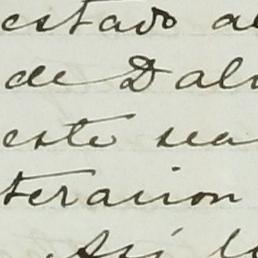 estado a
de Dal
este sea
teracion
Así l